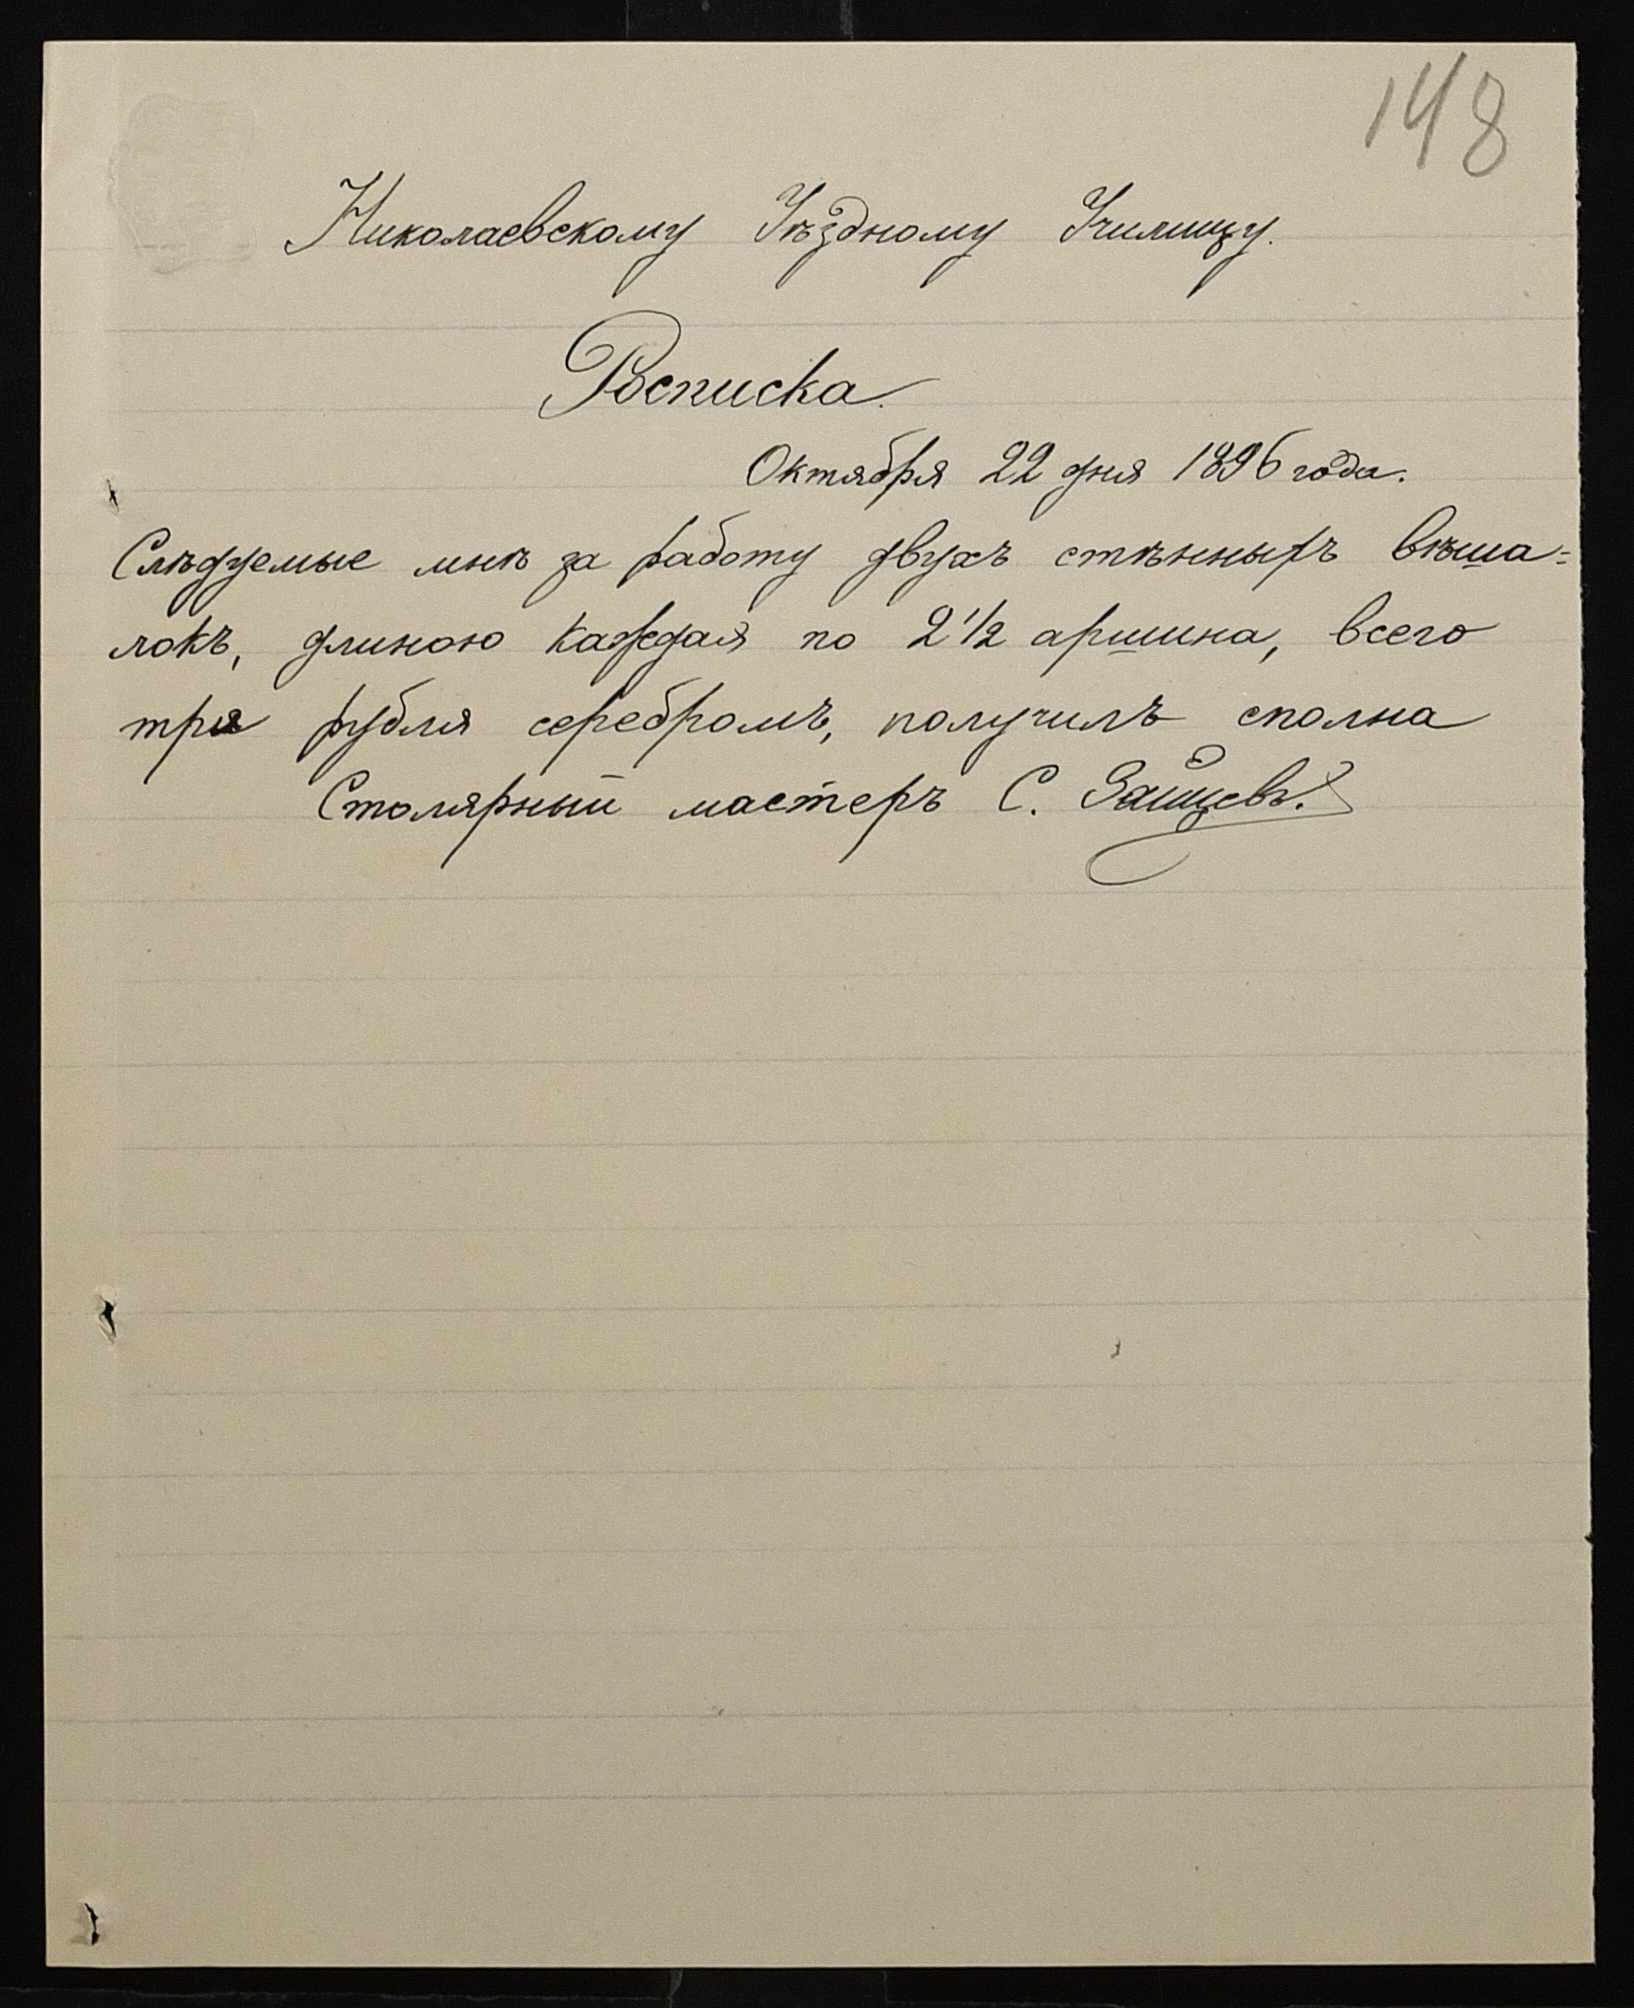 148
Николаевскому Уѣздному Училищу.
Росписка.
Октября 22 дня 1896 года.
Слѣдуемые мнѣ за работу двухъ стѣнныхъ вѣша=
локъ, длиною каждая по 2 1/2 аршина, всего
три рубля серебромъ, получилъ сполна
Столярный мастеръ С. Зайцевъ.